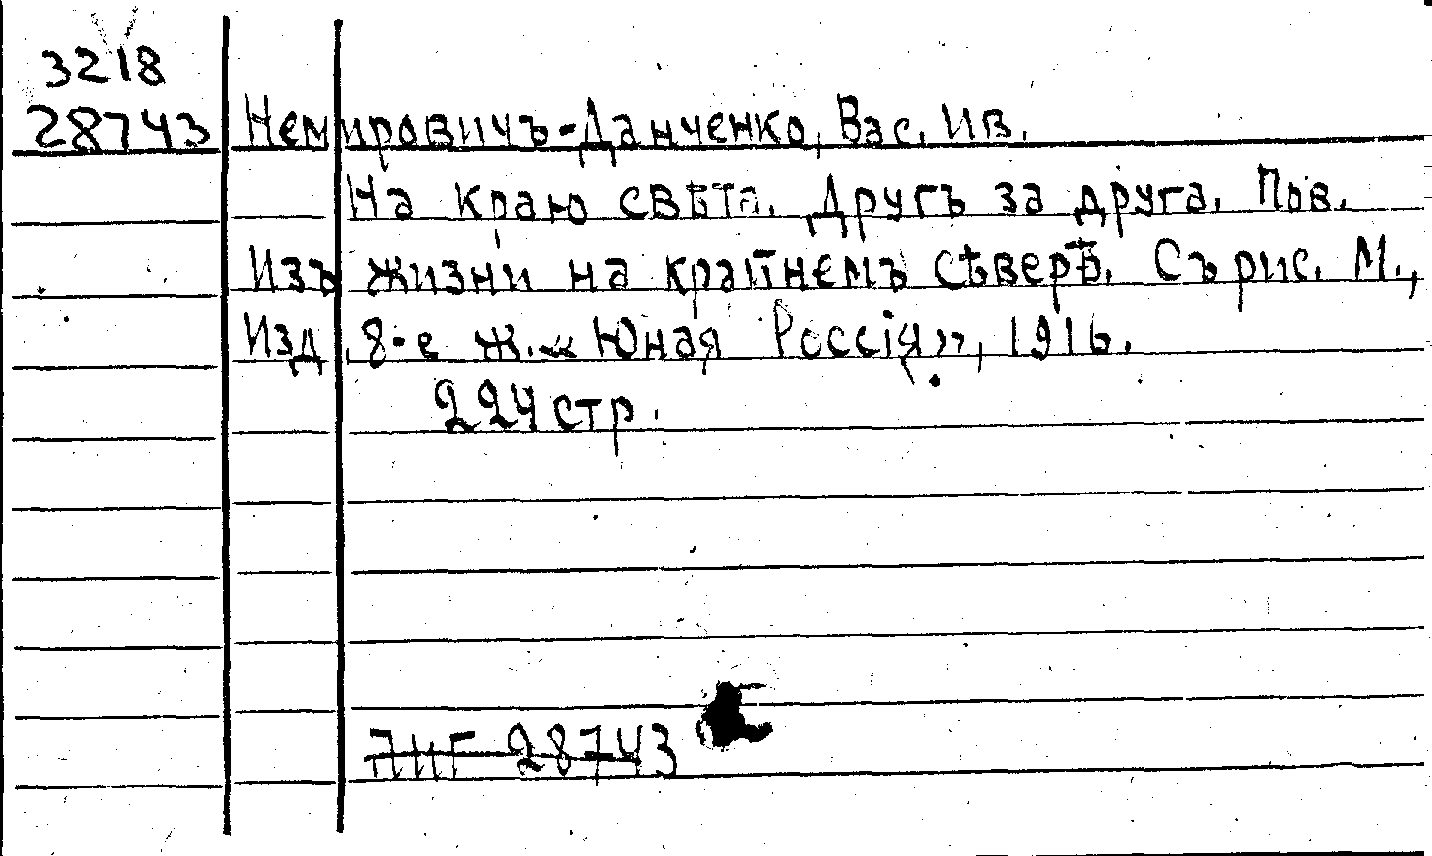 3218
28743 Немировичъ-Данченко, Вас. Ив.
На краю свѣта. Другъ за друга. Пов.
Изъ жизни на крайнемъ сѣверѣ. Съ рис. М.,
Изд. 8-е ж. «Юная Россія», 1916.
224 стр.
28743